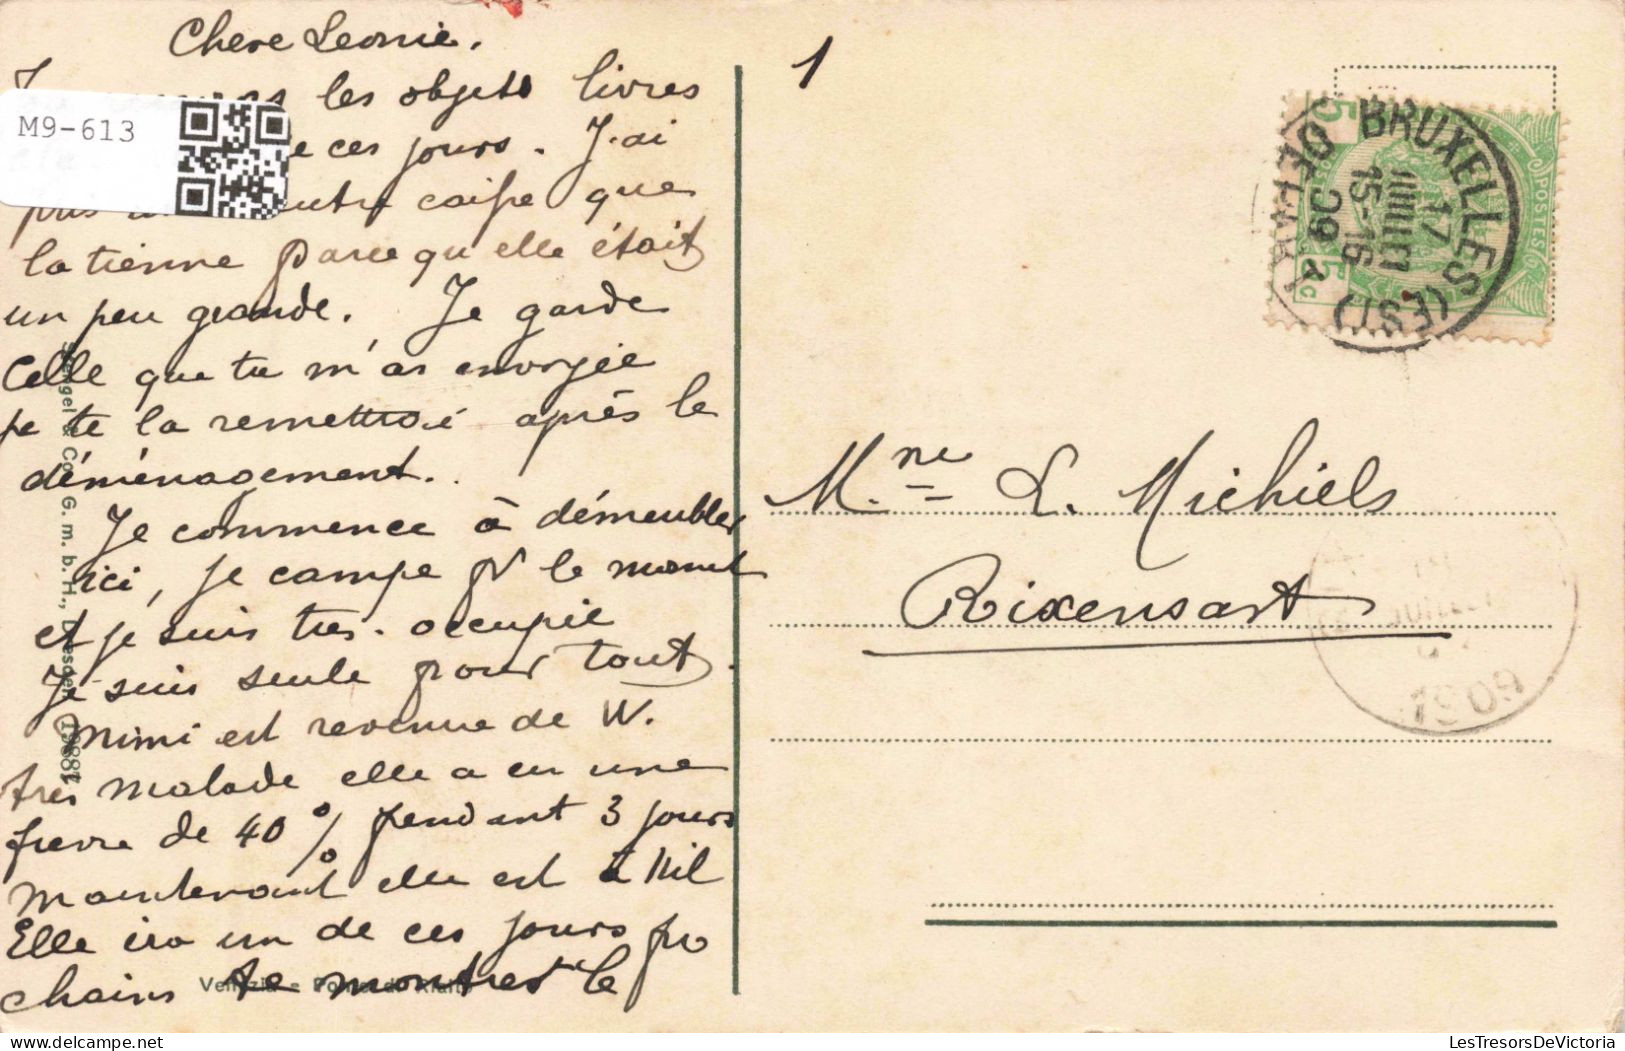 Chere Leonie.
les objets livres
M9-613
ces jours. J'ai
pas autre caisse que
la tienne parce qu'elle était
un peu grande. Je garde
Celle que tu m'as envoyée
je te la remettrai après le
déménagement..
Je commence à démeubler
ici, je campe pr le moment
et je suis très. occupée
Je suis seule pour tout.
Mimi est revenue de W.
très malade elle a eu une
fievre de 40 % pendant 3 jours
maintenant elle est à Nil
Elle ira un de ces jours pro
chains te montrer le
Stengel & Co., G. m. b. H., Dresden 19887
Venezia - Ponte di Rialto
1
BRUXELLES (EST)
17
JUILLET
15-16
09
5
5
POSTES
c
Mme L. Michiels
Rixensart
1909
LesTresorsDeVictoria
LesTresorsDeVictoria.com